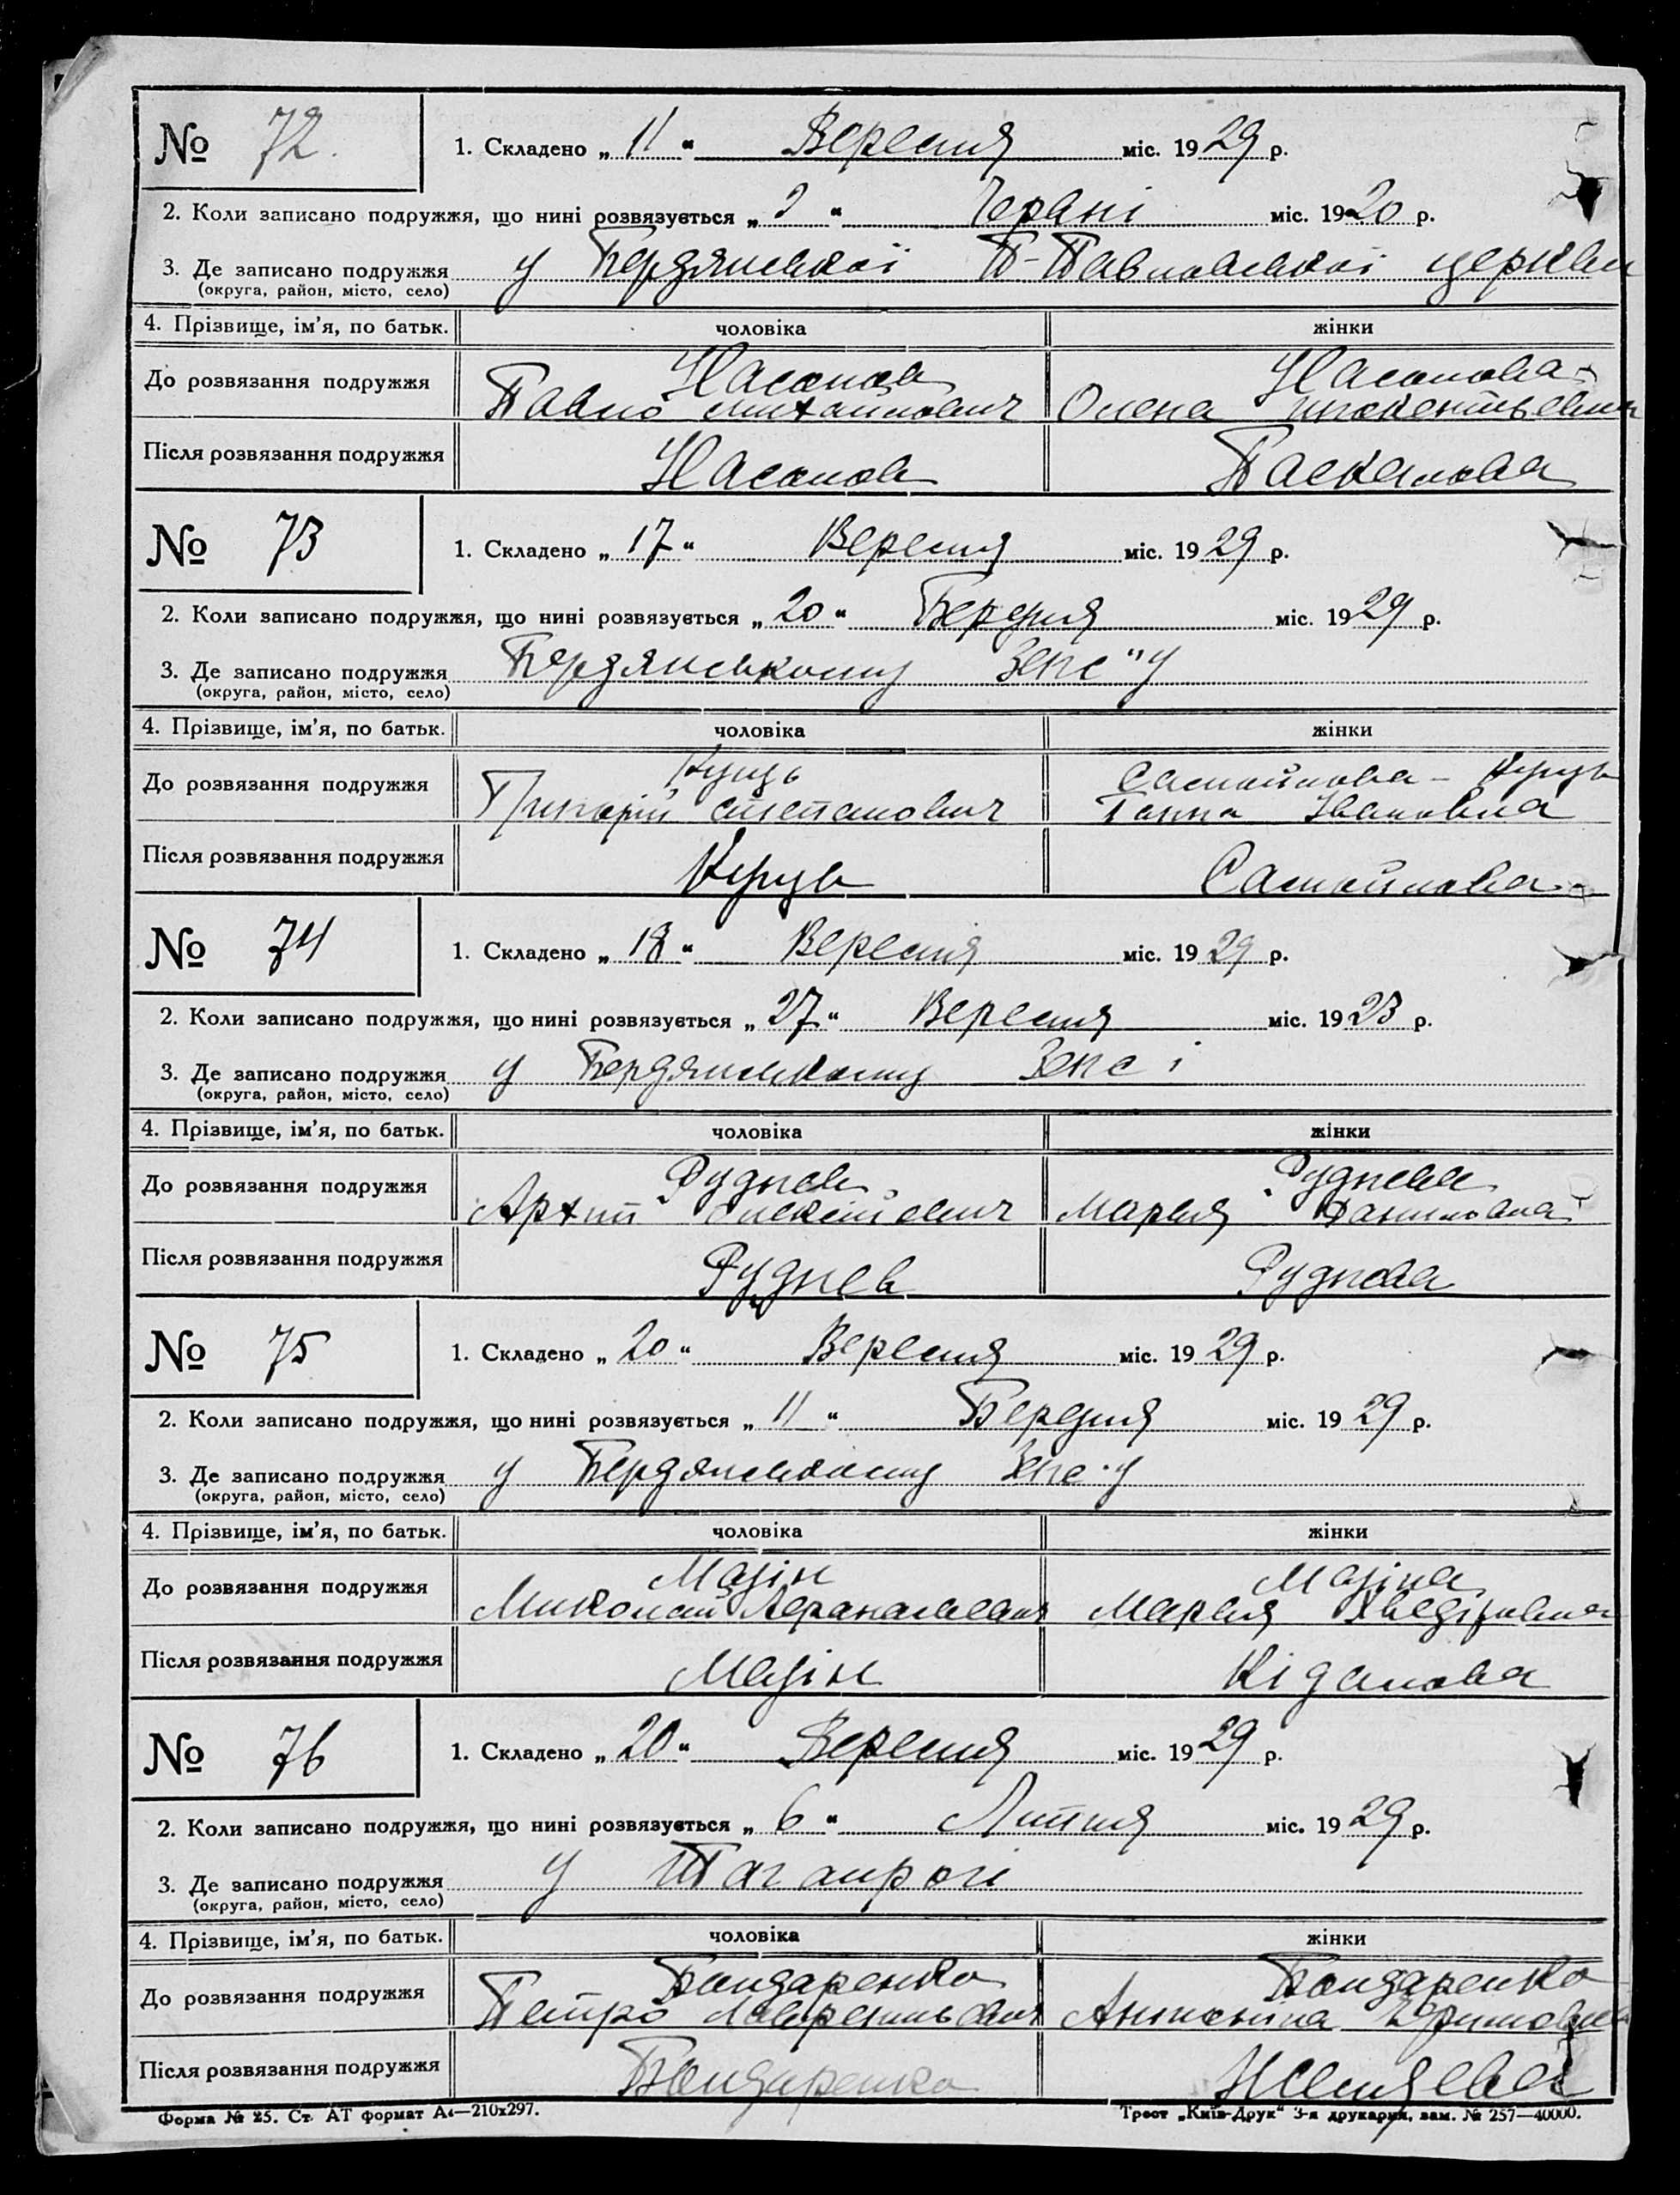 № 72. 1. Складено „ 11 “ Вересня міс. 1929 р.
2. Коли записано подружжя, що нині розвязується „ 2 “ Червні міс. 1920 р.
3. Де записано подружжя у Бердянської П-Павловської церкви
(округа, район, місто, село)
4. Прізвище, ім’я, по батьк. чоловіка жінки
Насонов Насонова
До розвязання подружжя Павло Михайлович Олена
Після розвязання подружжя Насонов Паскалова
№ 73 1. Складено „ 17 “ Вересня міс. 1929 р.
2. Коли записано подружжя, що нині розвязується „ 20 “ Березня міс. 1929 р.
3. Де записано подружжя Бердянському Загс"у
(округа, район, місто, село)
4. Прізвище, ім’я, по батьк. чоловіка жінки
Куць Самойлова - Куць
До розвязання подружжя Григорій Степанович Ганна Івановна
Після розвязання подружжя Куць Самойлова
№ 74 1. Складено „ 18 “ Вересня міс. 1929 р.
2. Коли записано подружжя, що нині розвязується „ 27 “ Вересня міс. 1923 р.
3. Де записано подружжя у Бердянському Загсі
(округа, район, місто, село)
4. Прізвище, ім’я, по батьк. чоловіка жінки
Руднев Руднева
До розвязання подружжя Архип Олексійович Марья Даниловна
Після розвязання подружжя Руднев Руднева
№ 75 1. Складено „ 20 “ Вересня міс. 1929 р.
2. Коли записано подружжя, що нині розвязується „ 11 “ Березня міс. 1929 р.
3. Де записано подружжя у Бердянському Загс'у
(округа, район, місто, село)
4. Прізвище, ім’я, по батьк. чоловіка жінки
Мазін Мазіна
До розвязання подружжя Миколай Марья
Після розвязання подружжя Мазін Кіданова
№ 76 1. Складено „ 20 “ Вересня міс. 1929 р.
2. Коли записано подружжя, що нині розвязується „ 6 “ Липня міс. 1929 р.
3. Де записано подружжя у Таганрогі
(округа, район, місто, село)
4. Прізвище, ім’я, по батьк. чоловіка жінки
Бондаренко Бондаренко
До розвязання подружжя Петро Лаврентьович Антоніна
Після розвязання подружжя Бондаренко
Форма № 25. Ст. АТ формат А4—210х297. Трест „Київ-Друк“ 3-я друкарня, зам. № 257—40000.